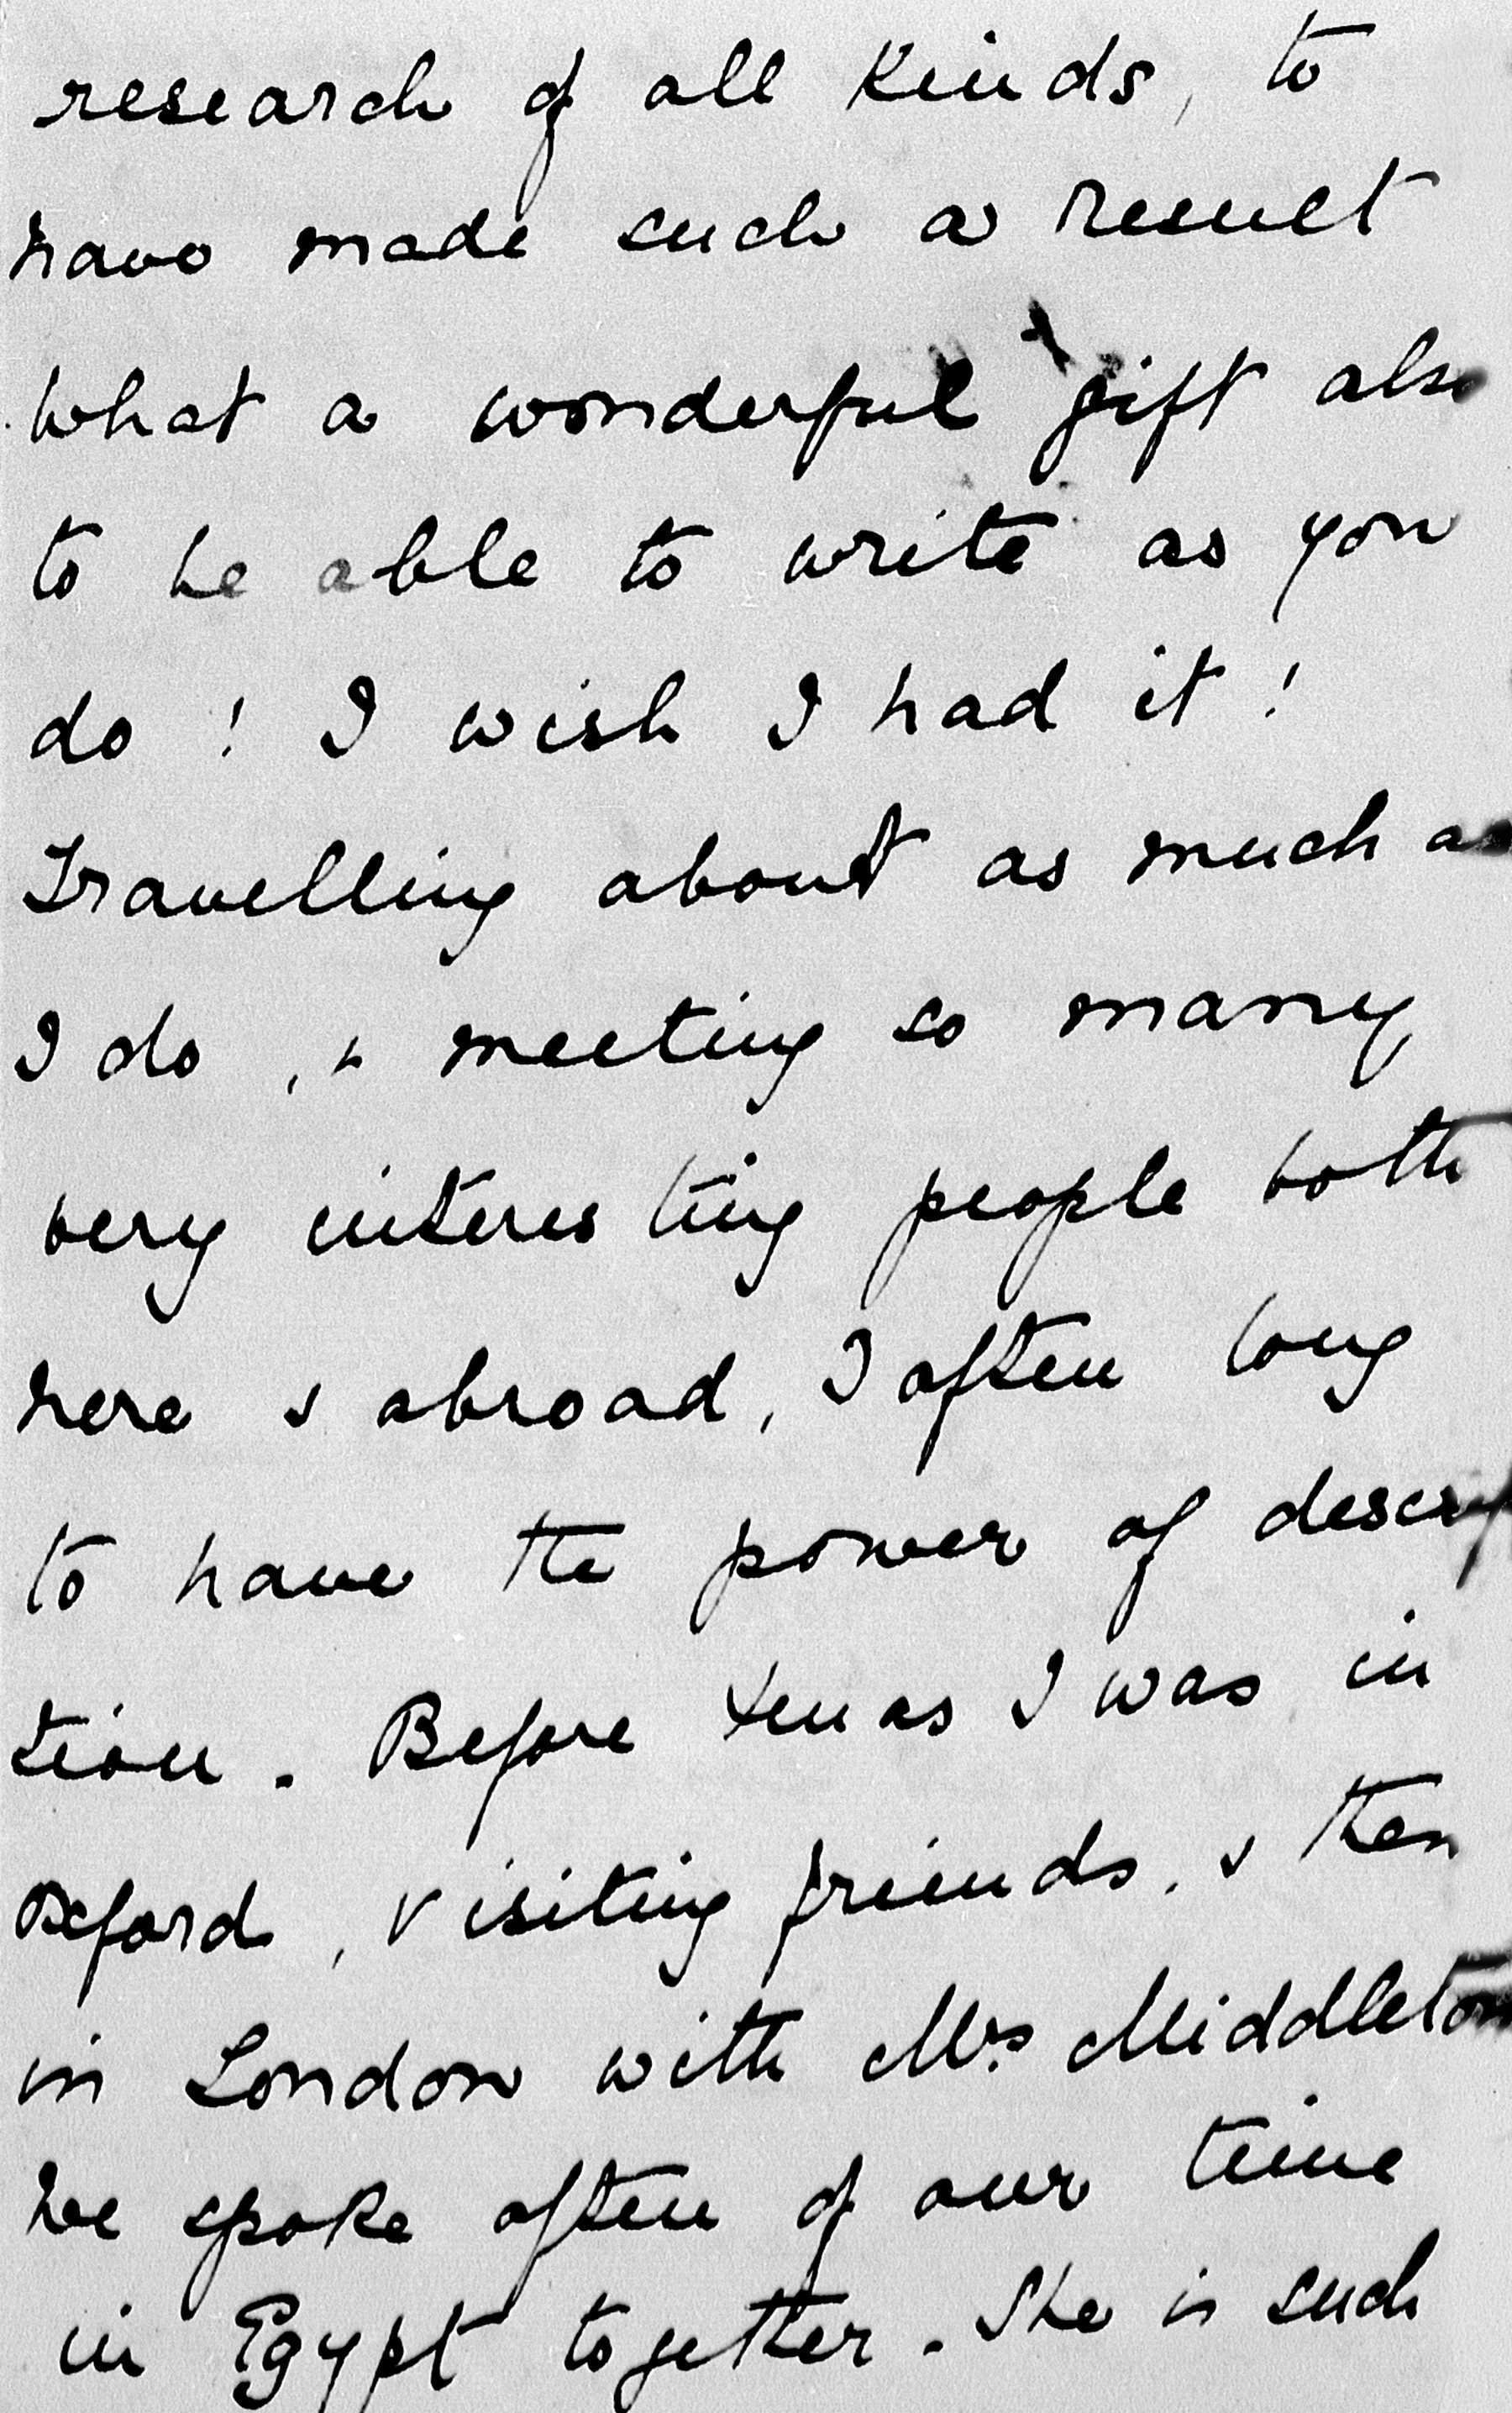 research of all kinds, to
have made such a result
What a wonderful gift also
to be able to write as you
do! I wish I had it!
Travelling about as much as
I do, & meeting so many
very interesting people both
here & abroad, I often long
to have the power of descrip
tion. Before Xmas I was in
Oxford, visiting friends, & then
in London with Mrs Middleton
We spoke often of our time
in Egypt together. She is such